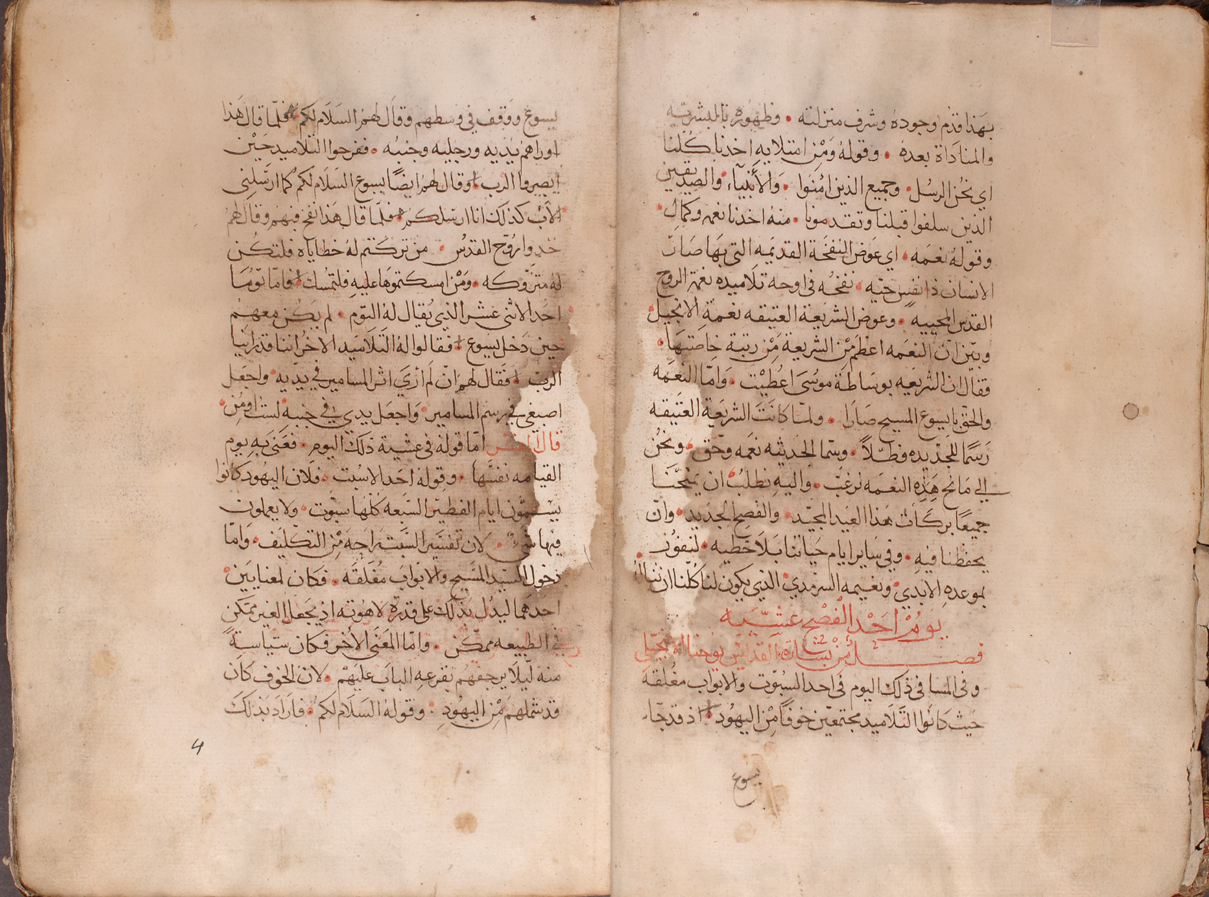 بهذا قدم وجوده وشرف منزلته • وظهوره بالبشريه
والمناداة بعده • وقوله ومن امتلايه اخذنا كلنا
اي نحن الرسل • وجميع الذين امنوا • والأنبياء • والصديقين
الذين سلفوا قبلنا وتقدمونا • منه اخذنا نعمه وكمال •
وقوله نعمه • اي عوض النفخة القديمه التي بها صار
الانسان ذا نفس حيه • نفخه في اوجه تلاميذه نعمة الروح
القدس المحييه • وعوض الشريعة العتيقه نعمة الانجيل •
وبين ان النعمه اعظم من الشريعة من رتبة خاصتيها •
فقال ان الشريعه بوساطة موسى اعطيت • واما النعمه
والحق بايسوع المسيح صارا • ولما كانت الشريعة العتيقه
رسما للجديده وظلاً • وسما الحديثه نعمه وحق • ونحن
الي مانح هذه النعمه نرغب • واليه نطلب ان يمنحنا
جميعا بركات هذا العيد المجيد • والفصح الجديد • وان
يحفظنا فيه • وفي ساير ايام حياتنا بلا خطيه • لنفوز
بموعده الابدي • ونعيمه السرمدي • الذي يكون لنا كلنا ان
يوم احد الفصح عشية
فصل من بشارة القديس يوحنا الانجيلي
وفي المسا في ذلك اليوم في احد السبوت والابواب مغلقه
حيث كانوا التلاميد مجتمعين خوفا من اليهود • اذ قد جاء
يسوع
يسوع ووقف في وسطهم وقال لهم السلام لكم • فلما قال هذا
اوراهم يديه ورجليه وجنبه • ففرحوا التلاميد حين
ابصروا الرب • وقال لهم ايضا يسوع السلام لكم كما ارسلني
الاب كذلك انا ارسلكم • فلما قال هذا نفخ فيهم وقال لهم
خدوا روح القدس • من تركتم له خطاياه فلتكن
له متروكه • ومن امسكتموها عليه فلتمسك • فاما توما
احد الاثني عشر الذي يقال له التوم • لم يكن معهم
حين دخل يسوع • فقالوا له التلاميد الاخر اننا قد راينا
الرب • فقال لهم ان لم أري اثر المسامير في يديه • واجعل
اصبعي في رسم المسامير • واجعل يدي في جنبه لست اومن •
قال المفسر اما قوله في عشية ذلك اليوم • فعني به يوم
القيامه نفسها • وقوله احد الاسبت • فلان اليهود كانوا
يسمون ايام الفطير السبعه كلها سبوت • ولا يعملون
فيها • لان تفسير السبت راحه من التكليف • واما
دخول السيد المسيح والابواب مغلقه • فكان لمعنايين •
احدهما ليدل بذلك على قدرة لاهوته اذ يجعل الغير ممكن
في الطبيعه ممكن • واما المعني الاخر فكان سياسة
منه ليلا يرجعهم بقرعه الباب عليهم • لان الخوف كان
قد شملهم من اليهود • وقوله السلام لكم • فاراد بذلك
4